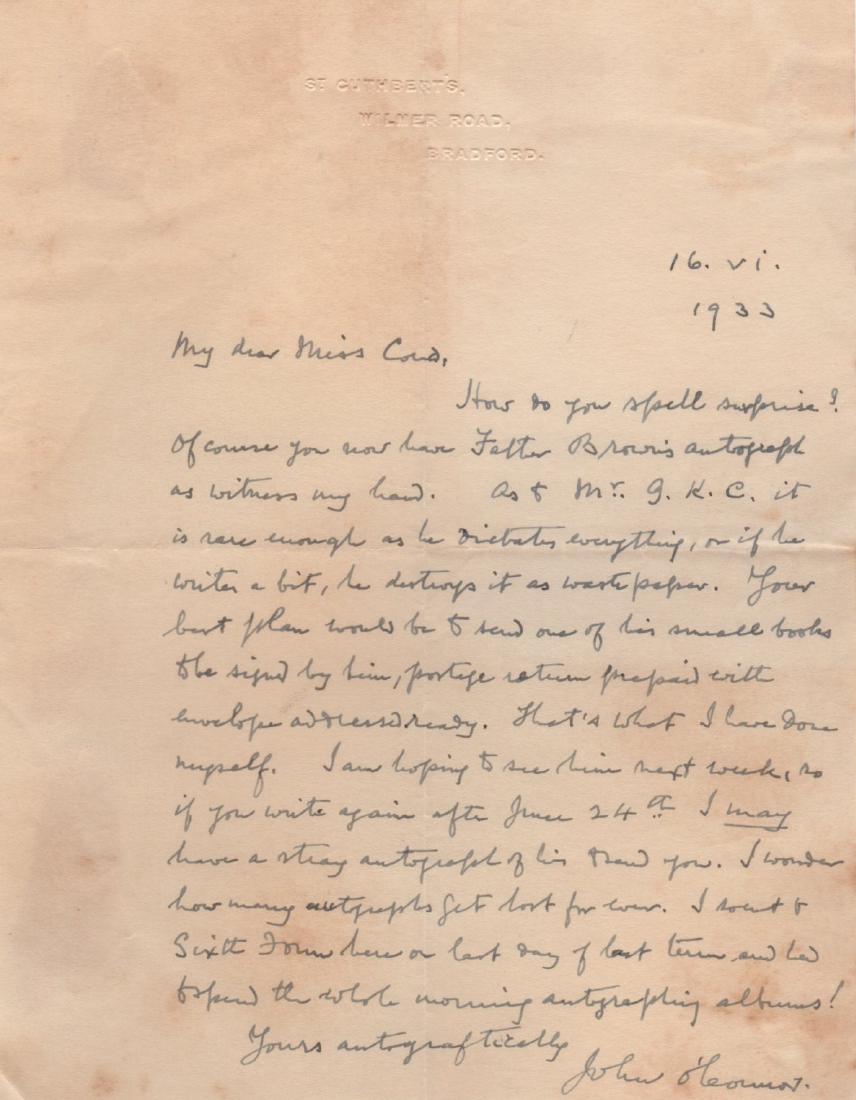 ST CUTHBERT'S,
WILMER ROAD,
BRADFORD.
16. vi.
1933
My dear Miss Cond,
How do you spell surprise?
Of course you now have Father Brown's autograph
as witness my hand. As to Mr. G. K. C. it
is rare enough as he dictates everything, or if he
writes a bit, he destroys it as waste paper. Your
best plan would be to send one of his small books
to be signed by him, postage return prepaid with
envelope addressed ready. That's what I have done
myself. I am hoping to see him next week, so
if you write again after June 24th I may
have a stray autograph of his to send you. I wonder
how many autographs get lost for ever. I went to
Sixth Form here on last day of last term and had
to spend the whole morning autographing albums!
Yours autograftically
John O'Connor.